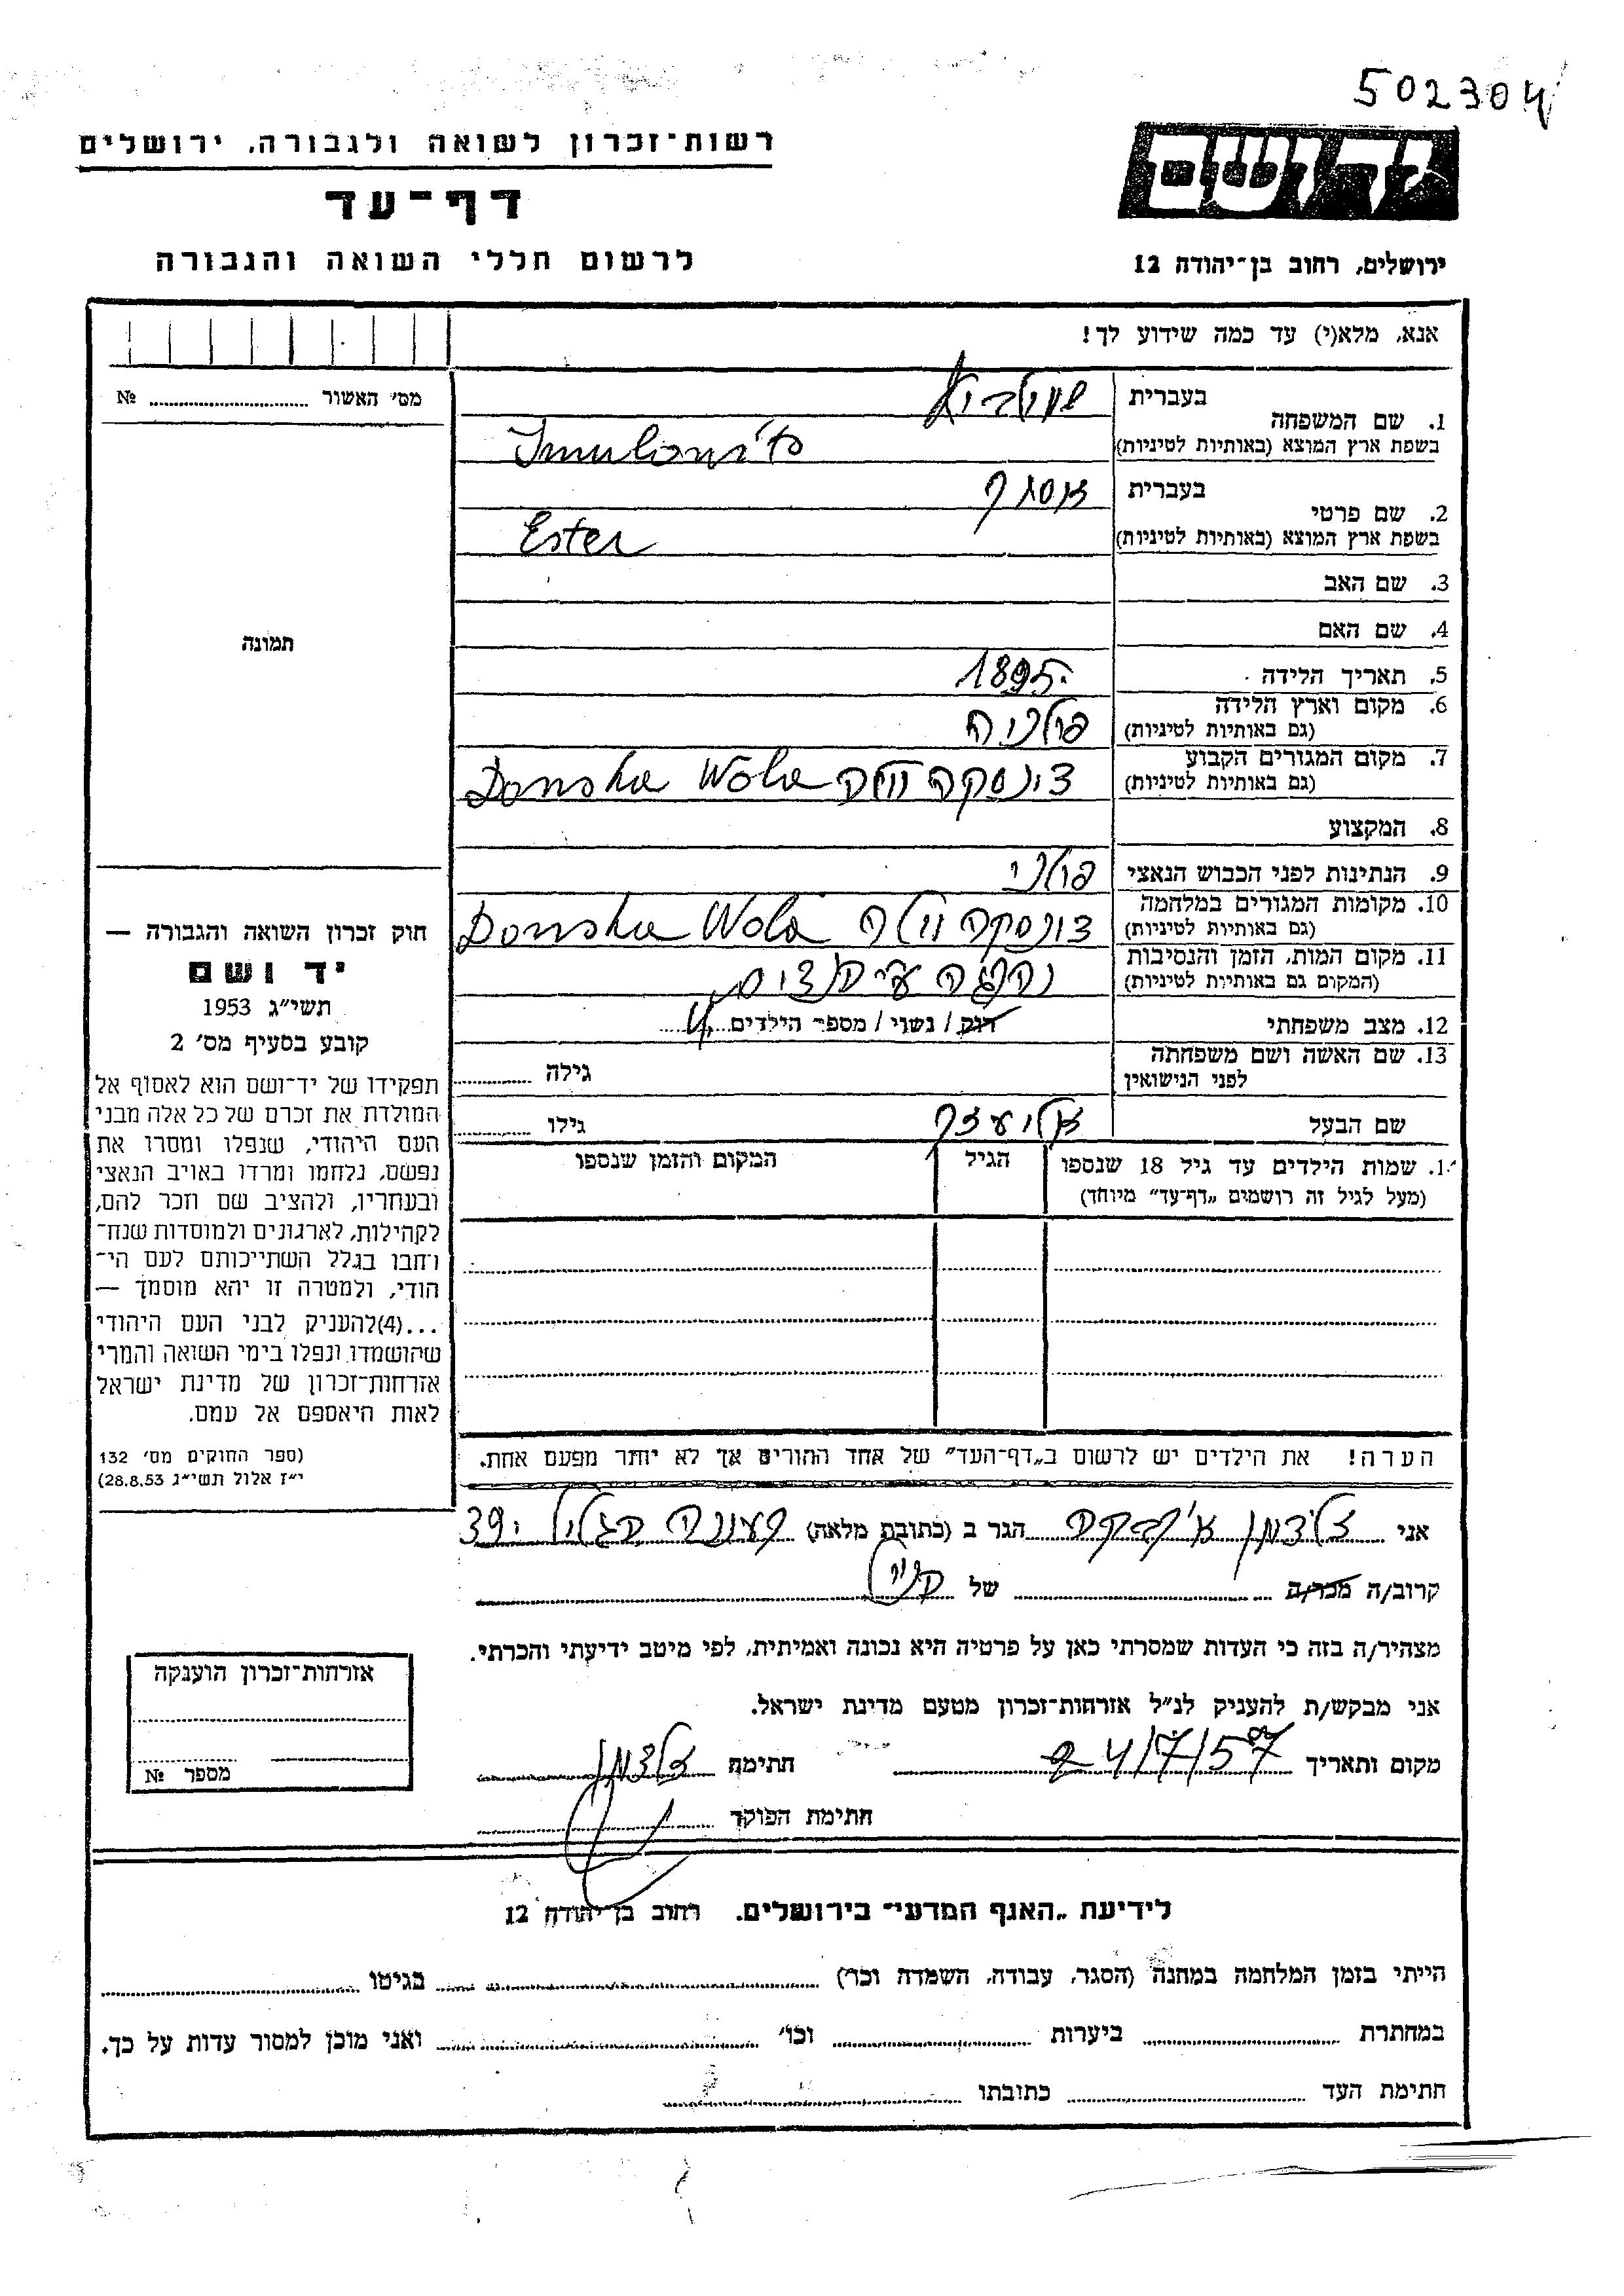 502304
רשות-זכרון לשואה ולגבורה, ירושלים
דף-עד
לרשום חללי השואה והגבורה
יד ושם
ירושלים, רחוב בן-יהודה 12
אנא, מלא(י) עד כמה שידוע לך!
מס׳ האשור № ........
1. שם המשפחה
בעברית
בשפת ארץ המוצא (באותיות לטיניות)
2. שם פרטי
בעברית אסתר
בשפת ארץ המוצא (באותיות לטיניות) Ester
3. שם האב
4. שם האם
5. תאריך הלידה 1895
6. מקום וארץ הלידה פולניה
(גם באותיות לטיניות)
7. מקום המגורים הקבוע Donska Wola
(גם באותיות לטיניות)
8. המקצוע
9. הנתינות לפני הכבוש הנאצי פולני
10. מקומות המגורים במלחמה דונסקה וולה Donska Wola
(גם באותיות לטיניות)
11. מקום המות, הזמן והנסיבות
(המקום גם באותיות לטיניות)
12. מצב משפחתי רוק / נשוי / מספר הילדים 4
13. שם האשה ושם משפחתה
לפני הנישואין
גילה ........
שם הבעל אליעזר גילו ........
1. שמות הילדים עד גיל 18 שנספו הגיל המקום והזמן שנספו
(מעל לגיל זה רושמים „דף-עד״ מיוחד)
תמונה
חוק זכרון השואה והגבורה —
יד ושם
תשי״ג 1953
קובע בסעיף מס׳ 2
תפקידו של יד-ושם הוא לאסוף אל
המולדת את זכרם של כל אלה מבני
העם היהודי, שנפלו ומסרו את
נפשם, נלחמו ומרדו באויב הנאצי
ובעוזריו, ולהציב שם וזכר להם,
לקהילות, לארגונים ולמוסדות שנח-
רבו בגלל השתייכותם לעם הי-
הודי, ולמטרה זו יהא מוסמך —
...(4)להעניק לבני העם היהודי
שהושמדו ונפלו בימי השואה והמרי
אזרחות-זכרון של מדינת ישראל
לאות היאספם אל עמם.
(ספר החוקים מס׳ 132
י״ז אלול תשי״ג 28.8.53)
הערה! את הילדים יש לרשום ב„דף-העד״ של אחד ההורים אך לא יותר מפעם אחת.
אני הגר ב (כתובת מלאה) 39
קרוב/ה מכר/ה ........ של
מצהיר/ה בזה כי העדות שמסרתי כאן על פרטיה היא נכונה ואמיתית, לפי מיטב ידיעתי והכרתי.
אני מבקש/ת להעניק לנ״ל אזרחות-זכרון מטעם מדינת ישראל.
מקום ותאריך 24/7/57 חתימה
חתימת הפוקד ........
אזרחות-זכרון הוענקה
מספר №
לידיעת „האגף המדעי״ בירושלים. רחוב בן-יהודה 12
הייתי בזמן המלחמה במחנה (הסגר, עבודה, השמדה וכו׳) ........ בגיטו ........
במחתרת ........ ביערות ........ וכו׳ ........ ואני מוכן למסור עדות על כך.
חתימת העד ........ כתובתו ........